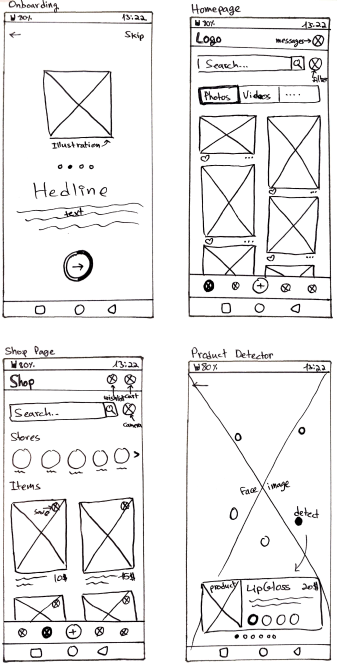 Onboarding
80% 13:22
Skip
Illustration
Hedline
text
Homepage
80% 13:22
Logo messages
Search...
filter
Photos Videos ....
Shop Page
80% 13:22
Shop
wishlist cart
Search...
camera
Stores
Items
save
10$ 15$
Product Detector
80% 13:22
Face image
detect
product LipGloss 20$